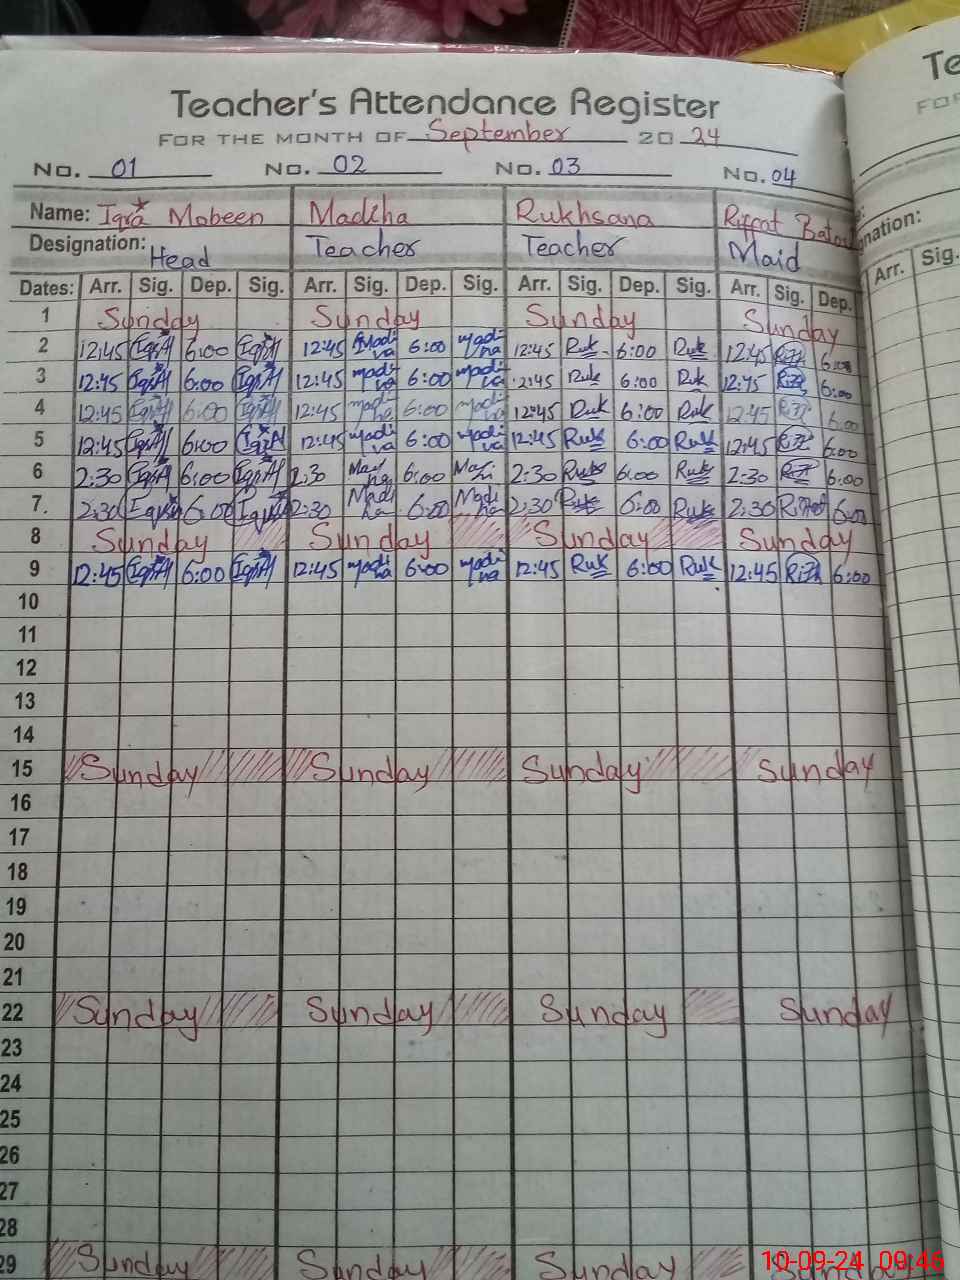 Teacher's Attendance Register
FOR THE MONTH OF September 20 24
No. 01 No. 02 No. 03 No. 04
Name: Iqra Mobeen Madiha Rukhsana Riffat
Designation: Head Teacher Teacher Maid
Dates: Arr. Sig. Dep. Sig. Arr. Sig. Dep. Sig. Arr. Sig. Dep. Sig. Arr. Sig. Dep.
1 Sunday Sunday Sunday Sunday
2 12:45 6:00 12:45 6:00 12:45 Ruk 6:00 Ruk 12:45 6:00
3 12:45 6:00 12:45 6:00 12:45 Ruk 6:00 Ruk 12:45 6:00
4 12:45 6:00 12:45 6:00 12:45 Ruk 6:00 Ruk 12:45 6:00
5 12:45 6:00 12:45 6:00 12:45 Ruk 6:00 Ruk 12:45 6:00
6 2:30 6:00 2:30 6:00 2:30 Ruk 6:00 Ruk 2:30 6:00
7. 2:30 6:00 2:30 6:00 2:30 Ruk 6:00 Ruk 2:30 6:00
8 Sunday Sunday Sunday Sunday
9 12:45 6:00 12:45 6:00 12:45 Ruk 6:00 Ruk 12:45 6:00
10
11
12
13
14
15 Sunday Sunday Sunday Sunday
16
17
18
19
20
21
22 Sunday Sunday Sunday Sunday
23
24
25
26
27
28
29 Sunday Sunday Sunday
Te
FOR
gnation:
Arr. Sig.
10-09-24 09:46